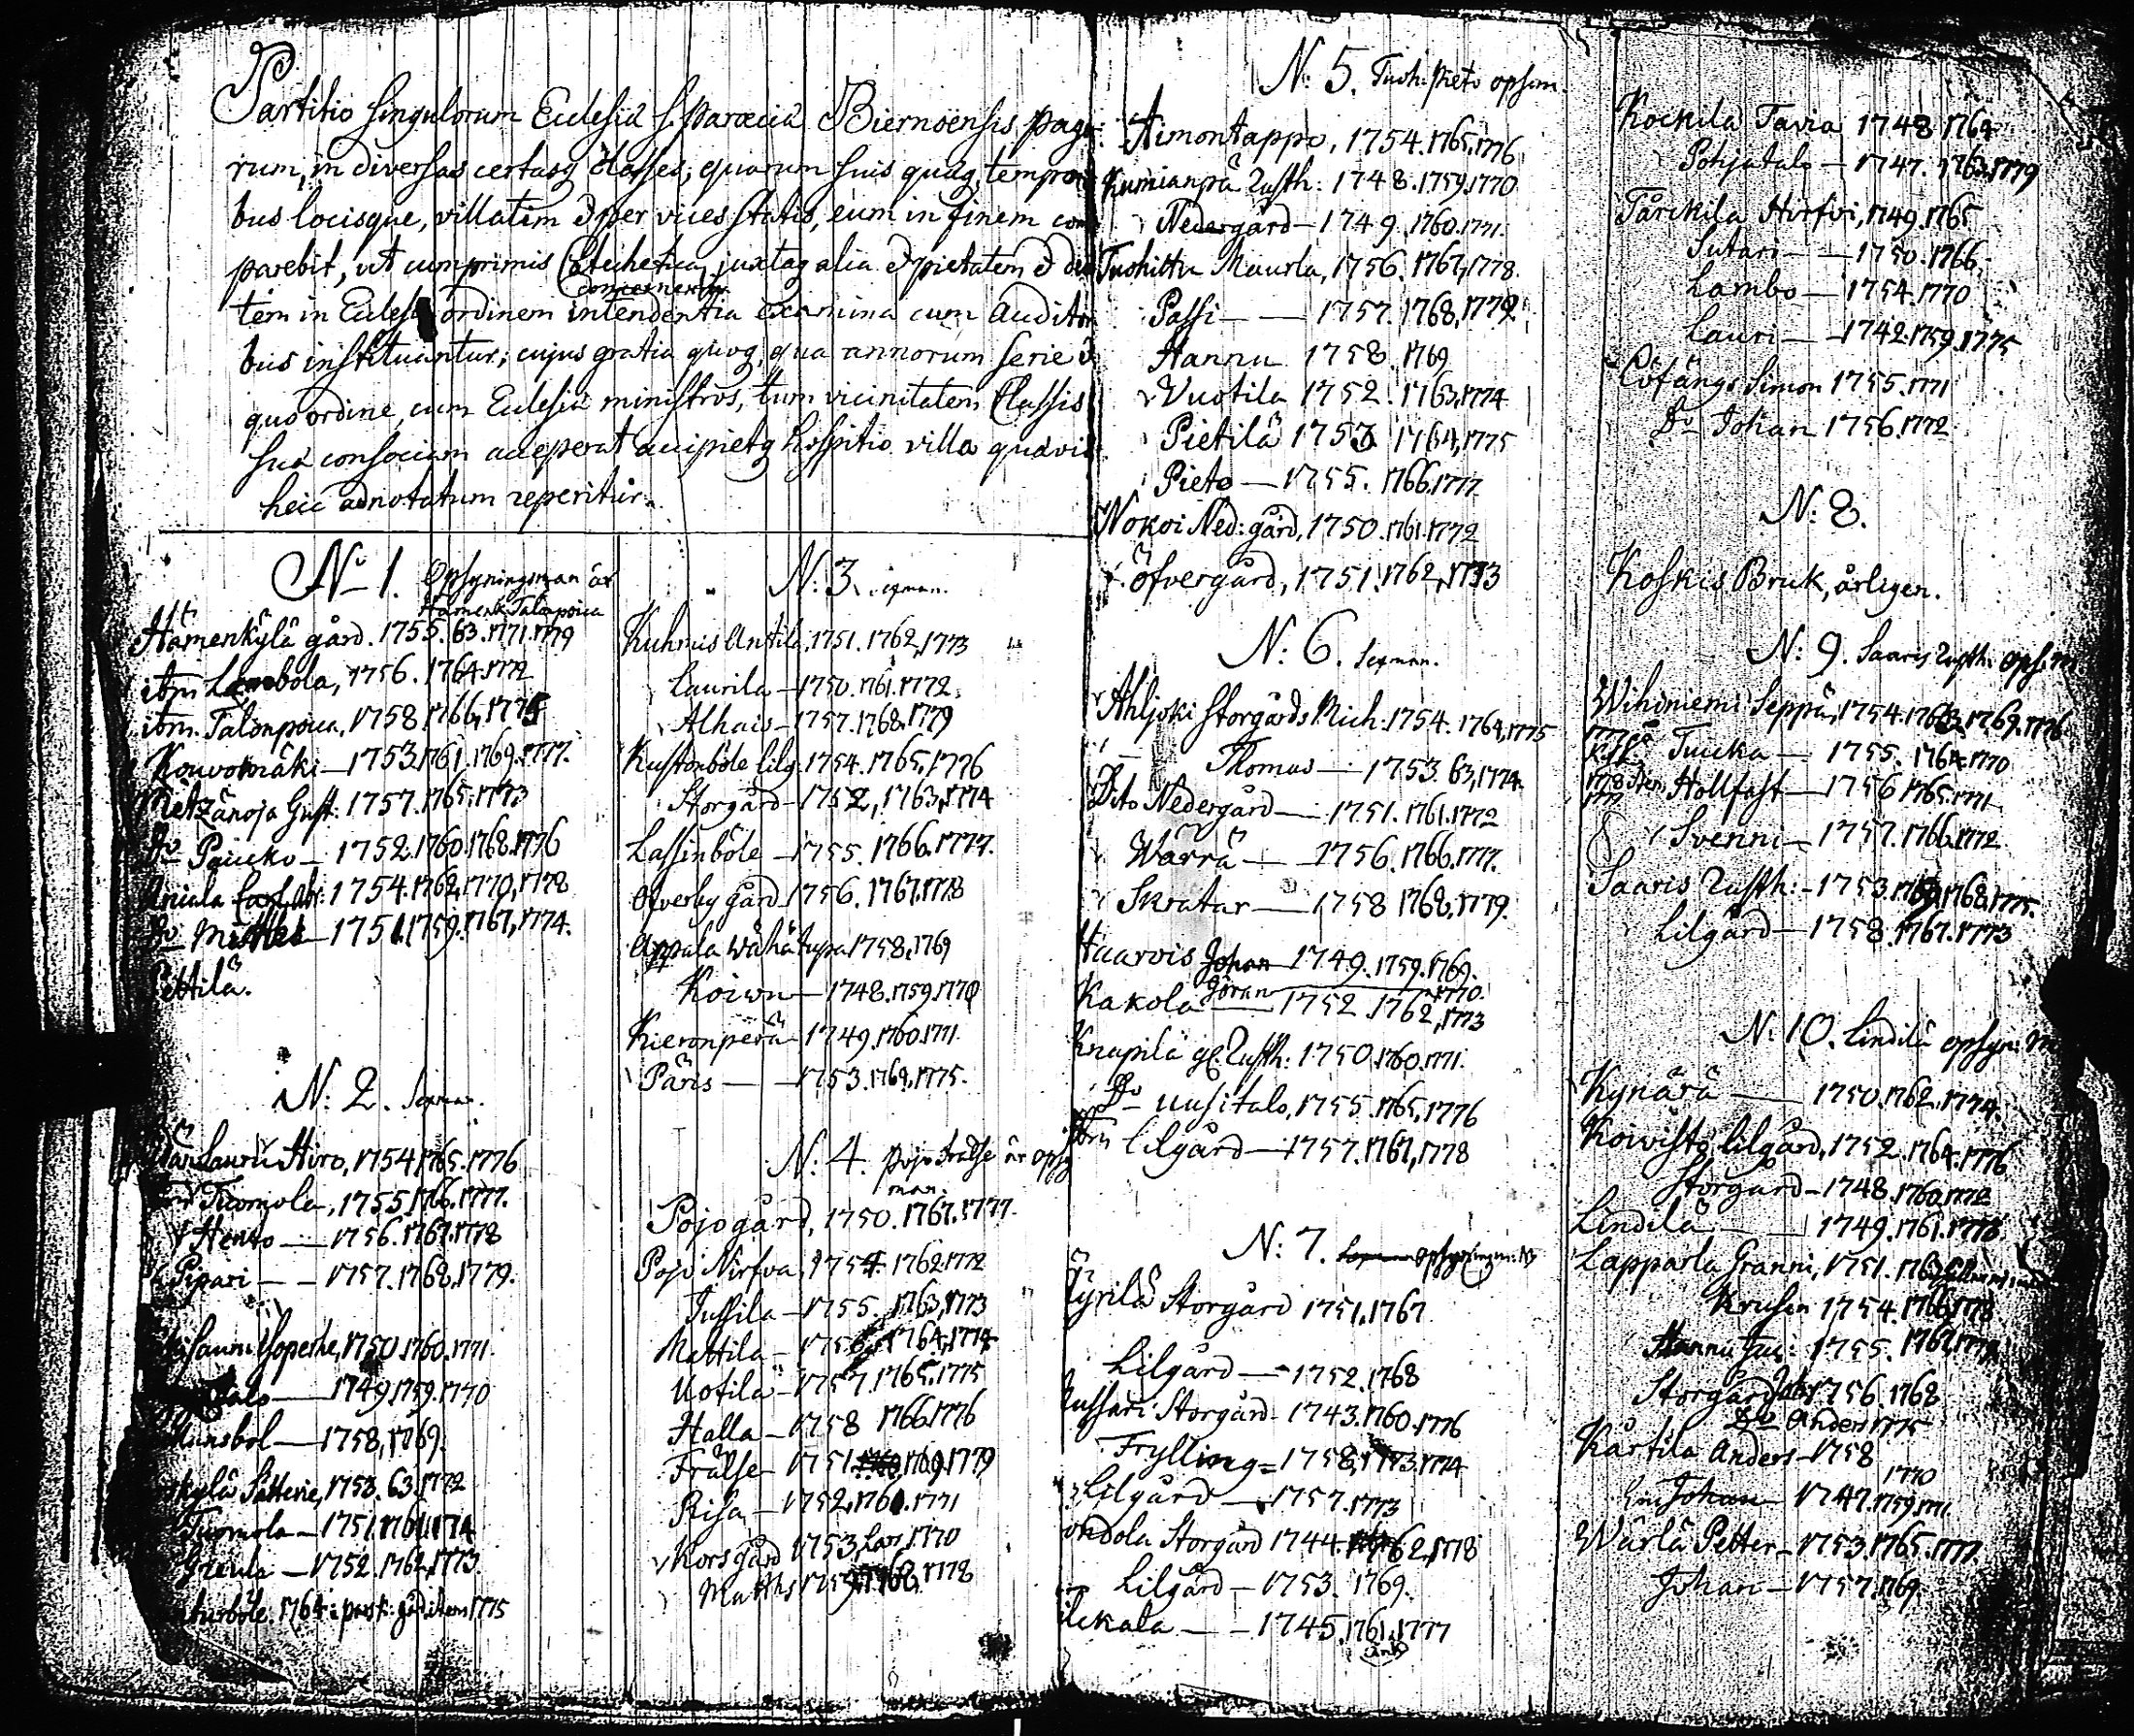 Partitio singulorum Eclesiæ s. paræciæ Biernöensis pago:
rum, in diversas certasq classes, quarum suis quæq tempori
bus locisque, villatim & per vices statis, eum in finem com
parebit, ut cumprimis Catechetica, juxtaq alia & pietatem &
concernentia
tem in Eclesia ordinem intendentia examina cum Auditori
bus instituantur; cujus gratia quoq, qua annorum serie &
quo ordine, cum Eclesiæ ministros, tum vicinitatem Classis
suæ consociam acceperat accipietq hospitio villa quævis
heic adnotatum reperitur.
N 1. Opsyningsman är
Hämenk. Talonpoica
Hämenkylä gård. 1755. 63. 1771. 1779
ibm Lambola, 1756. 1764. 1772
ibm. Talonpoica, 1758. 1766, 1775
Kouvomäki — 1753. 1761. 1769. 1777.
Metzänoja Gust: 1757. 1765. 1773
Do Paucko — 1752. 1760. 1768. 1776
Aniala Carl Abr: 1754. 1762, 1770, 1778
Do Matthes — 1751. 1759. 1767, 1774.
Pettilä.
N: 2. Sexman.
Lauri Hiro, 1754. 1765. 1776
Tuomola, 1755. 1766. 1777.
Heico — 1756. 1767. 1778
Pipari — 1757. 1768. 1779.
1750. 1760. 1771.
talo — 1749. 1759. 1770
Munsbol — 1758, 1769.
kylä Sätterie, 1753. 63. 1772
Tuomola — 1751. 1761. 1774
Grenla — 1752. 1762. 1773.
böle. 1764 1775
N: 3. Sexman.
Kuhmis Antila, 1751. 1762. 1773
Laurila — 1750. 1761. 1772.
Alhais — 1757. 1768. 1779
Kustonböle lilg. 1754. 1765. 1776
Storgård — 1752, 1763, 1774
Lassinböle — 1755. 1766. 1777.
Ofverby gård 1756. 1767. 1778
Appala Wähätupa 1758. 1769
Koiwu — 1748. 1759. 1770
Kieronperä 1749. 1760. 1771.
Päris — 1753. 1764. 1775.
N: 4. Pojo Frälse är opsy
man.
Pojo gård, 1750. 1767. 1777.
Pojo Nirfva, 1754. 1762. 1772
Jussila — 1755. 1763, 1773
Mattila — 1756. 1764. 1774
Uotila — 1757. 1765. 1775
Halla — 1758 1766. 1776
Frälse — 1751. 1769. 1779
Risa — 1752. 1760. 1771
Korsgård 1753, Lars, 1770
Matths 1759. 1768. 1778
N: 5. Tuoh: Pieto opsym
Aimontappo, 1754. 1765. 1776
Kumianpä Rusth: 1748. 1759. 1770
Nedergård — 1749. 1760. 1771.
Tuohittu Maurla, 1756. 1767, 1778.
Passi — 1757. 1768, 1779
Hannu 1758. 1769
Wuotila 1752. 1763, 1774
Pietilä 1753 1764, 1775
Pieto — 1755. 1766. 1777.
Nokoi Ned: gård, 1750. 1761. 1772
Öfvergård, 1751. 1762, 1773
N: 6. Sexman.
Ahljoki Storgårds Mich: 1754. 1764, 1775
Thomas — 1753. 63, 1774.
Dito Nedergård — 1751. 1761. 1772
Wärrä — 1756. 1766. 1777.
Skratar — 1758 1768. 1779.
Haarvis Johan 1749. 1759. 1769.
Jöran 1770.
Kakola — 1752. 1762, 1773
Knapilä gl. Rusth: 1750. 1760. 1771.
Do uusitalo, 1755. 1765, 1776
ibm lilgård — 1757. 1767, 1778
N: 7.
Kyrilä Storgård 1751, 1767
Lilgård — 1752. 1768
Storgård 1743. 1760. 1776
Frylling — 1758, 1773. 1774
Lilgård — 1757. 1773
Storgård 1744. 62, 1778
Lilgård — 1753. 1769.
1745. 1761. 1777
Kockila Tavia 1748 1764
Pohjatalo — 1747. 1763. 1779
Tärckila Hirfvi, 1749. 1765
Sutari — 1750. 1766.
Lambo — 1754. 1770
Lauri — 1742. 1759. 1775
Löfängs Simon 1755. 1771
Do Johan 1756. 1772
N: 8.
Koskis Bruk, årligen.
N: 9. Saaris Rusth. opsm
Wihiniemi Seppä, 1754. 1763, 1769. 1776
Tuicka — 1755. 1764. 1770
Hollfast — 1756 1765. 1771
Svenni — 1757. 1766. 1772
Saaris Rusth: — 1753. 1768. 1775.
Lilgård — 1758. 1767. 1773
N: 10. Lindilä opsyn: m
Kynärä — 1750. 1762. 1774.
Koivisto lilgård, 1752. 1764. 1776
Storgård — 1748. 1760. 1772
Lindilä — 1749. 1761. 1773
Lapparla Granni, 1751. 1763
Krusen 1754. 1766. 1778
Hannu 1755. 1767. 1779
Storgård 1756. 1768
Do Anders 1775
Kärtila Anders — 1758
1770
Johan — 1747. 1759. 1771.
Wärlä Petter — 1753. 1765. 1777.
Johan — 1757. 1769.